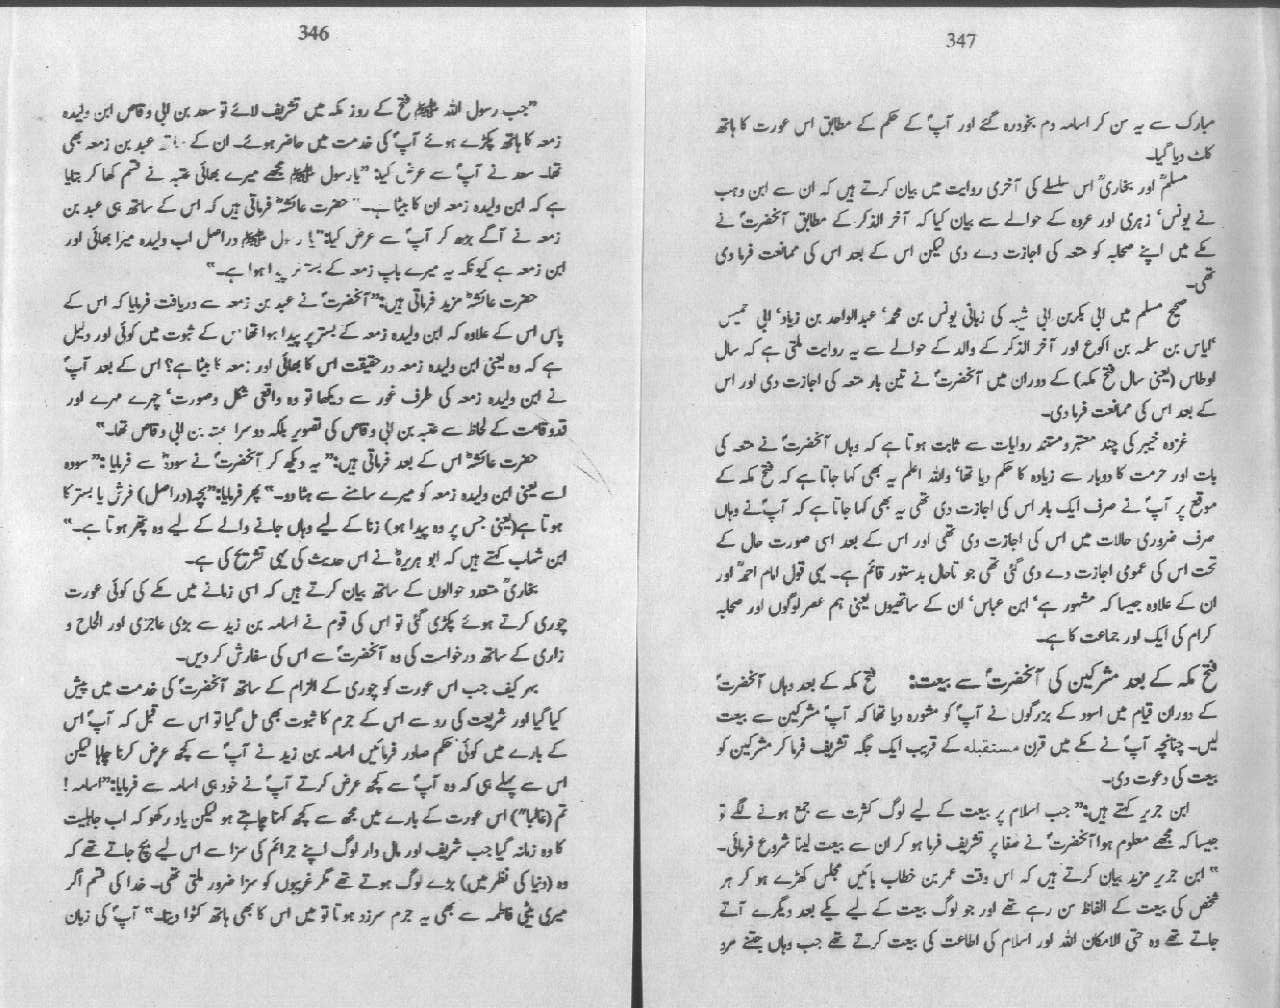 346
”جب رسول اللہ ﷺ فتح کے روز مکہ میں تشریف لائے تو سعد بن ابی وقاص ابن ولیدہ
زمعہ کا ہاتھ پکڑے ہوئے آپؐ کی خدمت میں حاضر ہوئے۔ ان کے ساتھ عبد بن زمعہ بھی
تھا۔ سعد نے آپؐ سے عرض کیا: ”یا رسول ﷺ مجھے میرے بھائی عتبہ نے قسم کھا کر بتایا
ہے کہ ابن ولیدہ زمعہ ان کا بیٹا ہے۔“ حضرت عائشہؓ فرماتی ہیں کہ اس کے ساتھ ہی عبد بن
زمعہ نے آگے بڑھ کر آپؐ سے عرض کیا: ”یا رسول ﷺ دراصل اب ولیدہ میرا بھائی اور
ابن زمعہ ہے کیونکہ یہ میرے باپ زمعہ کے بستر پر پیدا ہوا ہے۔“
حضرت عائشہؓ مزید فرماتی ہیں: ”آنحضرتؐ نے عبد بن زمعہ سے دریافت فرمایا کہ اس کے
پاس اس کے علاوہ کہ ابن ولیدہ زمعہ کے بستر پر پیدا ہوا تھا اس کے ثبوت میں کوئی اور دلیل
ہے کہ وہ یعنی ابن ولیدہ زمعہ در حقیقت اس کا بھائی اور زمعہ کا بیٹا ہے؟ اس کے بعد آپؐ
نے ابن ولیدہ زمعہ کی طرف غور سے دیکھا تو وہ واقعی شکل و صورت‘ چہرے مہرے اور
قدوقامت کے لحاظ سے عتبہ بن ابی وقاص کی تصویر بلکہ دوسرا عتبہ بن ابی وقاص تھا۔“
حضرت عائشہؓ اس کے بعد فرماتی ہیں: ”یہ دیکھ کر آنحضرتؐ نے سودہؓ سے فرمایا: ”سودہ
اسے یعنی ابن ولیدہ زمعہ کو میرے سامنے سے ہٹا دو۔“ پھر فرمایا: ”بچہ (دراصل) فرش یا بستر کا
ہوتا ہے (یعنی جس پر وہ پیدا ہو) زنا کے لیے وہاں جانے والے کے لیے وہ پتھر ہوتا ہے۔“
ابن شہاب کہتے ہیں کہ ابو ہریرہؓ نے اس حدیث کی یہی تشریح کی ہے۔
بخاریؒ متعدد حوالوں کے ساتھ بیان کرتے ہیں کہ اسی زمانے میں مکے کی کوئی عورت
چوری کرتے ہوئے پکڑی گئی تو اس کی قوم نے اسامہ بن زید سے بڑی عاجزی اور الحاح و
زاری کے ساتھ درخواست کی وہ آنحضرتؐ سے اس کی سفارش کر دیں۔
بہر کیف جب اس عورت کو چوری کے الزام کے ساتھ آنحضرتؐ کی خدمت میں پیش
کیا گیا اور شریعت کی رو سے اس کے جرم کا ثبوت بھی مل گیا تو اس سے قبل کہ آپؐ اس
کے بارے میں کوئی حکم صادر فرمائیں اسامہ بن زید نے آپؐ سے کچھ عرض کرنا چاہا لیکن
اس سے پہلے ہی کہ وہ آپؐ سے کچھ عرض کرتے آپؐ نے خود ہی اسامہ سے فرمایا: ”اسامہ !
تم (غالباً) اس عورت کے بارے میں مجھ سے کچھ کہنا چاہتے ہو لیکن یاد رکھو کہ اب جاہلیت
کا وہ زمانہ گیا جب شریف اور مال دار لوگ اپنے جرائم کی سزا سے اس لیے بچ جاتے تھے کہ
وہ (دنیا کی نظر میں) بڑے لوگ ہوتے تھے مگر غریبوں کو سزا ضرور ملتی تھی۔ خدا کی قسم اگر
میری بیٹی فاطمہ سے بھی یہ جرم سرزد ہوتا تو میں اس کا بھی ہاتھ کٹوا دیتا۔“ آپؐ کی زبان
347
مبارک سے یہ سن کر اسامہ دم بخود رہ گئے اور آپؐ کے حکم کے مطابق اس عورت کا ہاتھ
کاٹ دیا گیا۔
مسلمؒ اور بخاریؒ اس سلسلے کی آخری روایت میں بیان کرتے ہیں کہ ان سے ابن وہب
نے یونس‘ زہری اور عروہ کے حوالے سے بیان کیا کہ آخر الذکر کے مطابق آنحضرتؐ نے
مکے میں اپنے صحابہ کو متعہ کی اجازت دے دی لیکن اس کے بعد اس کی ممانعت فرما دی
تھی۔
صحیح مسلم میں ابی بکر بن ابی شیبہ کی زبانی یونس بن محمد‘ عبدالواحد بن زیاد‘ ابی خمیس
‘ایاس بن سلمہ بن اکوع اور آخر الذکر کے والد کے حوالے سے یہ روایت ملتی ہے کہ سال
اوطاس (یعنی سال فتح مکہ) کے دوران میں آنحضرتؐ نے تین بار متعہ کی اجازت دی اور اس
کے بعد اس کی ممانعت فرما دی۔
غزوہ خیبر کی چند معتبر و مستند روایات سے ثابت ہوتا ہے کہ وہاں آنحضرتؐ نے متعہ کی
بات اور حرمت کا دوبار سے زیادہ کا حکم دیا تھا‘ واللہ اعلم یہ بھی کہا جاتا ہے کہ فتح مکہ کے
موقع پر آپؐ نے صرف ایک بار اس کی اجازت دی تھی یہ بھی کہا جاتا ہے کہ آپؐ نے وہاں
صرف ضروری حالات میں اس کی اجازت دی تھی اور اس کے بعد اسی صورت حال کے
تحت اس کی عمومی اجازت دے دی گئی تھی جو تاحال بدستور قائم ہے۔ یہی قول امام احمدؒ اور
ان کے علاوہ جیسا کہ مشہور ہے‘ ابن عباس‘ ان کے ساتھیوں یعنی ہم عصر لوگوں اور صحابہ
کرام کی ایک اور جماعت کا ہے۔
فتح مکہ کے بعد مشرکین کی آنحضرتؐ سے بیعت: فتح مکہ کے بعد وہاں آنحضرتؐ
کے دوران قیام میں اسود کے بزرگوں نے آپؐ کو مشورہ دیا تھا کہ آپؐ مشرکین سے بیعت
لیں۔ چنانچہ آپؐ نے مکے میں قرن مستقبلہ کے قریب ایک جگہ تشریف فرما کر مشرکین کو
بیعت کی دعوت دی۔
ابن جریر کہتے ہیں: ”جب اسلام پر بیعت کے لیے لوگ کثرت سے جمع ہونے لگے تو
جیسا کہ مجھے معلوم ہوا آنحضرتؐ نے صفا پر تشریف فرما ہو کر ان سے بیعت لینا شروع فرمائی۔
“ ابن جریر مزید بیان کرتے ہیں کہ اس وقت عمر بن خطاب بائیں مجلس کھڑے ہو کر ہر
شخص کی بیعت کے الفاظ سن رہے تھے اور جو لوگ بیعت کے لیے یکے بعد دیگرے آتے
جاتے تھے وہ حتی الامکان اللہ اور اسلام کی اطاعت کی بیعت کرتے تھے جب وہاں جتنے مرد